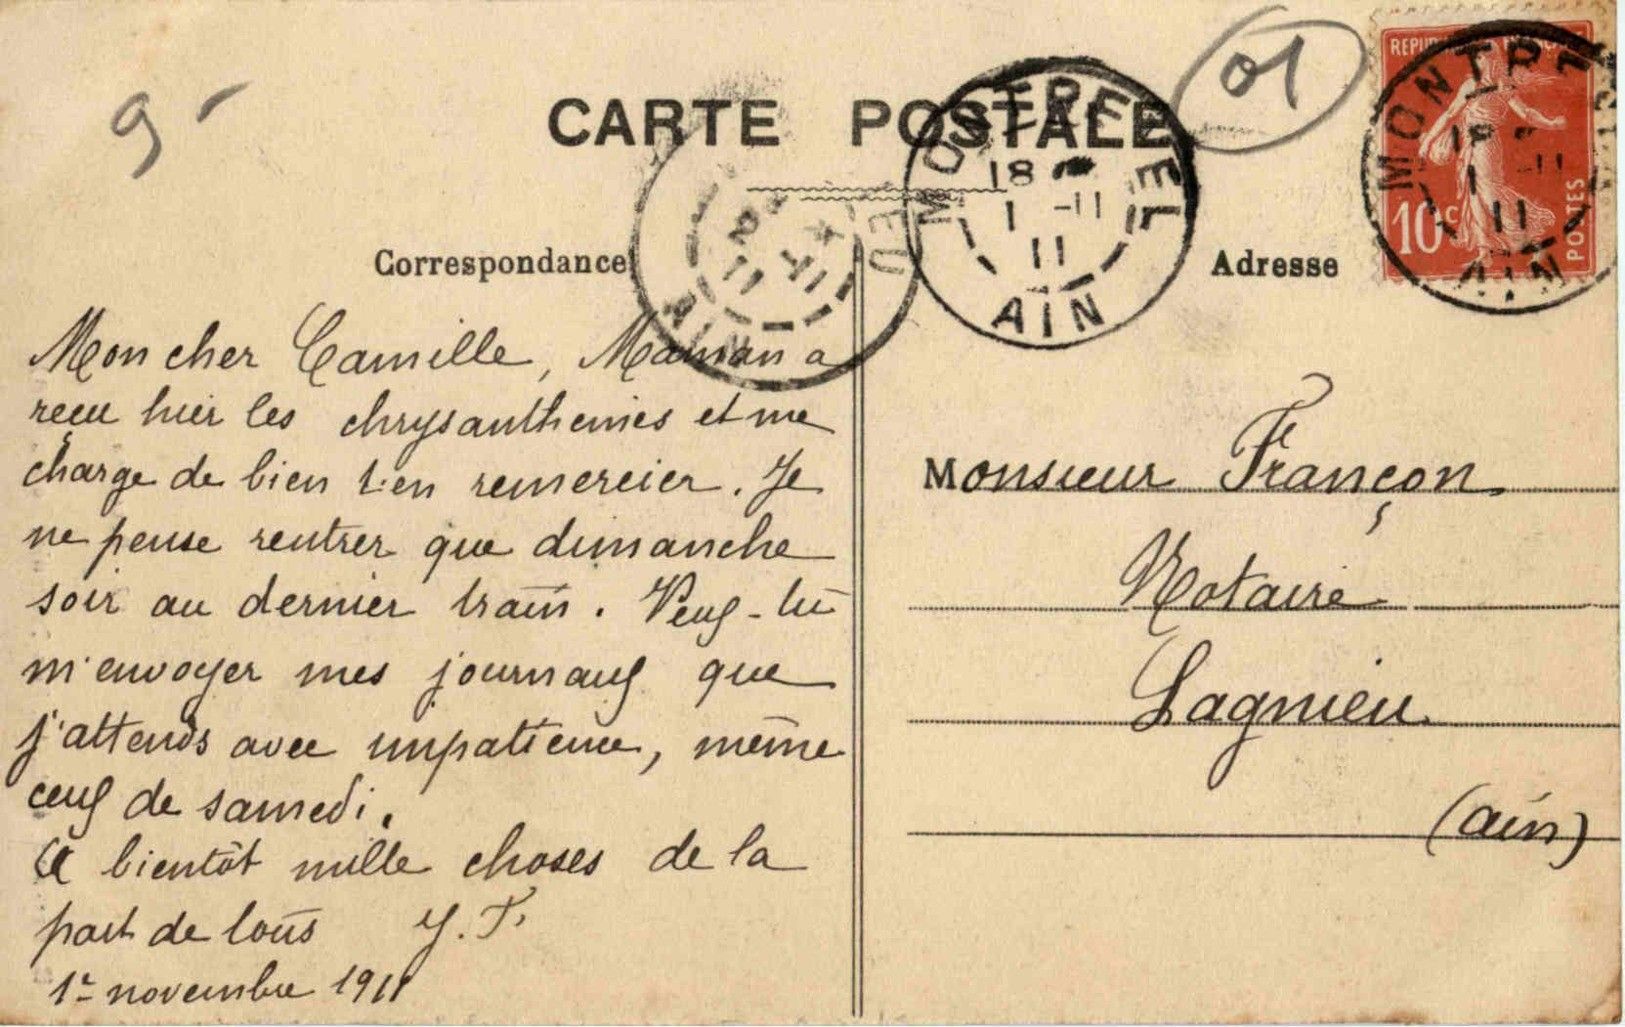 9-
CARTE POSTALE
01
REPUBLIQUE FRANÇAISE
10c
POSTES
MONTREVEL
18
1 -11
11
AIN
MONTREVEL
1 -11
11
AIN
EU
*
2 -11
11
AIN
Correspondance
Adresse
Mon cher Camille, Maman a
reçu hier les chrysanthemes et me
charge de bien t'en remercier. Je
ne pense rentrer que dimanche
soir au dernier train. Veux-tu
m'envoyer mes journaux que
j'attends avec impatience, même
ceux de samedi.
A bientôt mille choses de la
part de tous Y. F.
1r novembre 1911
Monsieur Françon
Notaire
Lagnieu
(Ain)